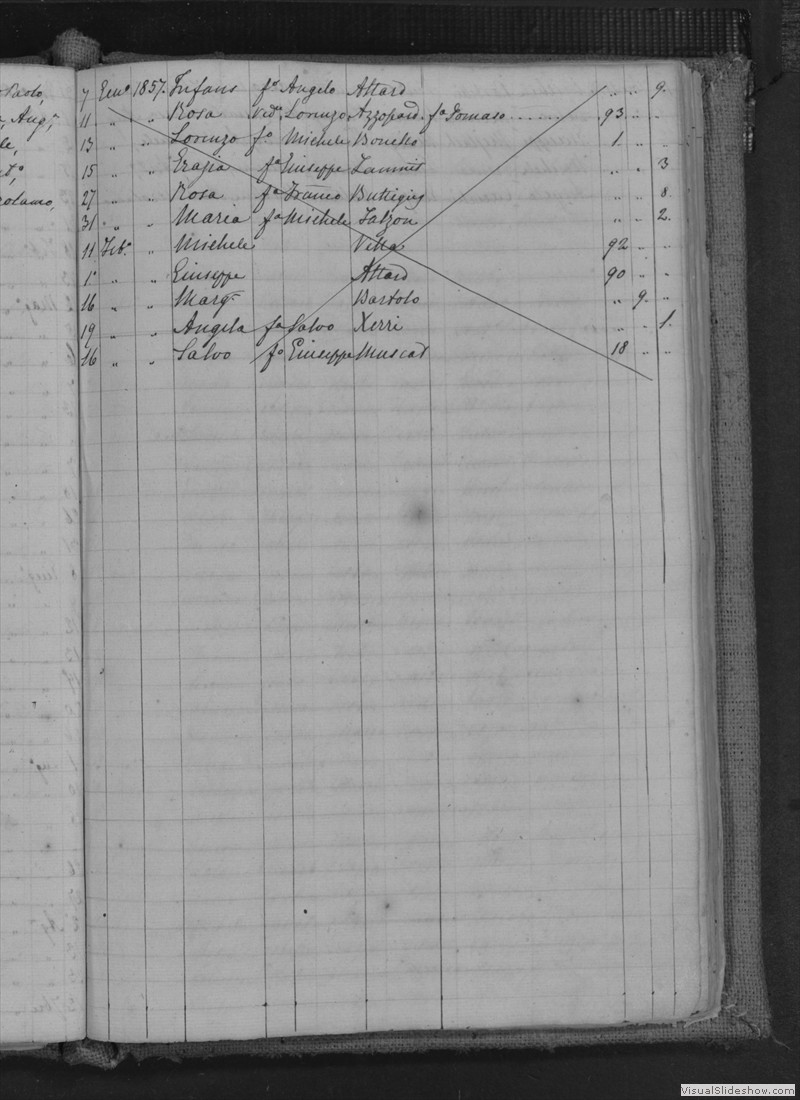 Paolo,
Aug,
7 Genº 1857. Infans fº Angelo Attard „ „ 9.
11 „ „ Rosa Vedª Lorenzo Azzopard. fª Tomaso ....... 93 „ „
13 „ „ Lorenzo fº Michele Bonello 1 „ „
15 „ „ Grazia fª Giuseppe „ „ 3
27 „ „ Rosa fª Franco Buttigieg „ „ 8.
31 „ „ Maria fª Michele Falzon „ „ 2.
11 Febº „ Michele Vella 92 „ „
1º „ „ Giuseppe Attard 90 „ „
16 „ „ Margª Bartolo „ 9. „
19 „ „ Angela fª Salvo Xerri „ „ 1.
16 „ „ Salvo fº Giuseppe Muscat 18 „ „
VisualSlideshow.com